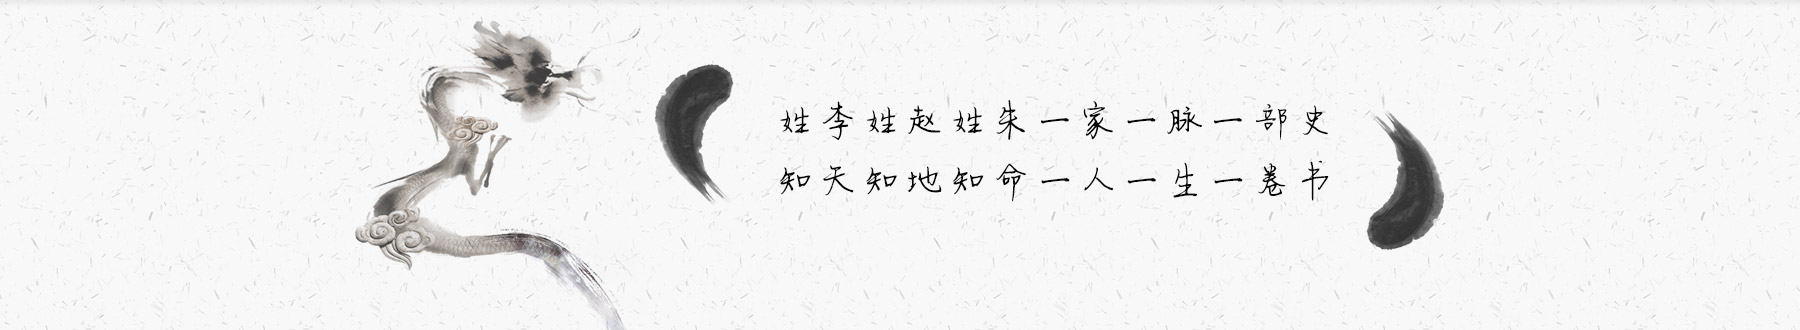 姓李姓赵姓朱一家一脉一部史
知天知地知命一人一生一卷书